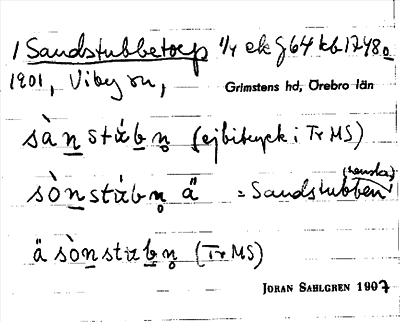 1 Sandstubbetorp 1/4 ek J 64 kb 1748o
1901, Viby sn,
Grimstens hd, Örebro län
sànstúbn̥ (ej bitryck i Tr MS)
(svenska)
sònstúbn̥ ä = Sandstubben
ä sònstubn̥ (Tr MS)
JORAN SAHLGREN 1907